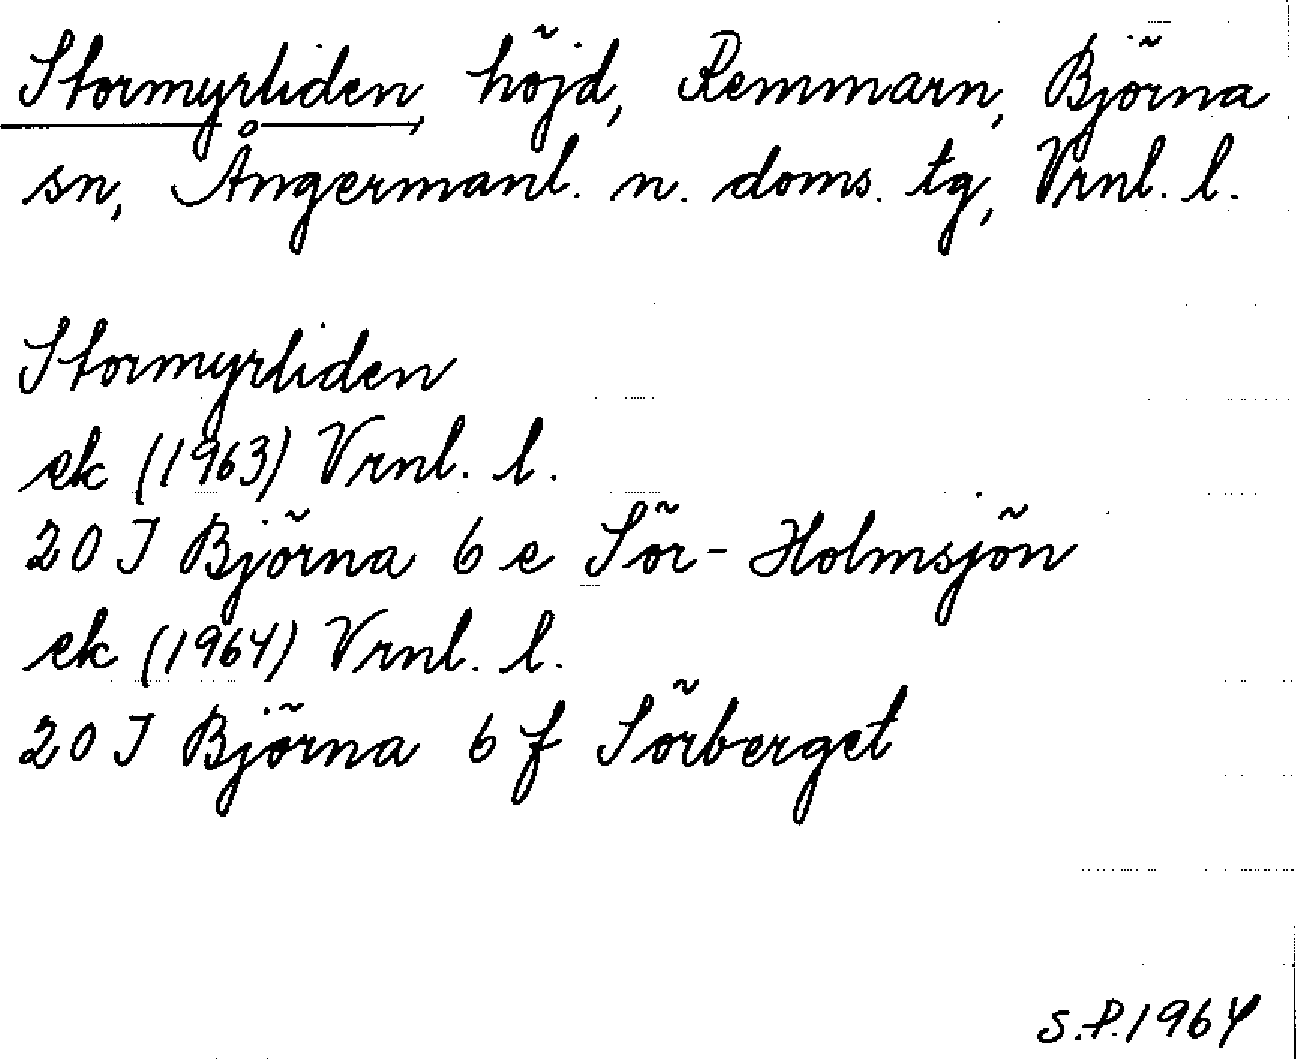 Stormyrliden, höjd, Remmarn, Björna
sn, Ångermanl. n. doms. tg, Vrnl. l.
Stormyrliden
ek (1963) Vrnl. l.
20 J Björna 6 e Sör-Holmsjön
ek (1964) Vrnl. l.
20 J Björna 6 f Sörberget
S.P. 1964